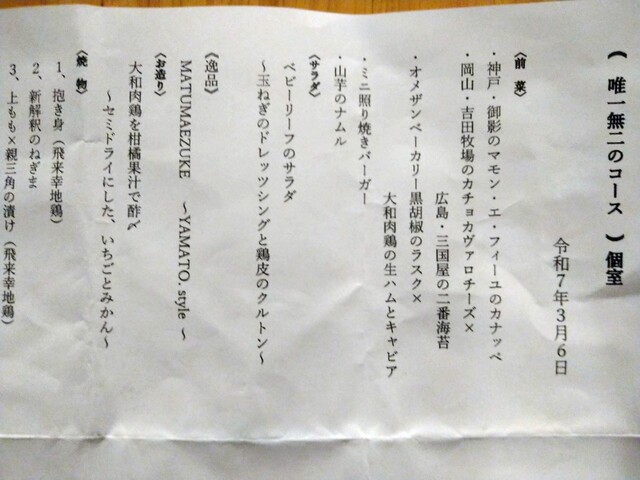 （ 唯一無二のコース ）個室
令和７年３月６日
〈前 菜〉
・神戸・御影のマモン・エ・フィーユのカナッペ
・岡山・吉田牧場のカチョカヴァロチーズ×
広島・三国屋の二番海苔
・オメザンベーカリー黒胡椒のラスク×
大和肉鶏の生ハムとキャビア
・ミニ照り焼きバーガー
・山芋のナムル
〈サラダ〉
ベビーリーフのサラダ
～玉ねぎのドレッツシングと鶏皮のクルトン～
《逸品》
MATUMAEZUKE ～YAMATO. style ～
〈お造り〉
大和肉鶏を柑橘果汁で酢〆
～セミドライにした、いちごとみかん～
〈焼 物〉
1、抱き身（飛来幸地鶏）
2、新解釈のねぎま
3、上もも×親三角の漬け（飛来幸地鶏）